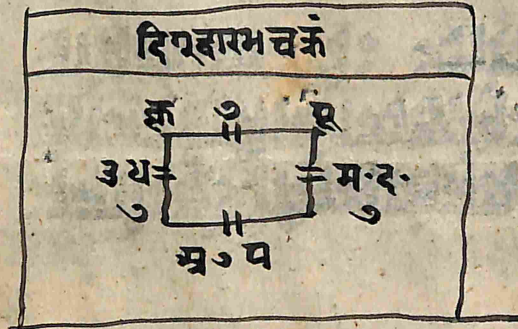 दिग्द्वारभचक्रं
कृ ७ पू
उ ध म·द·
७ ७
अ ७ प